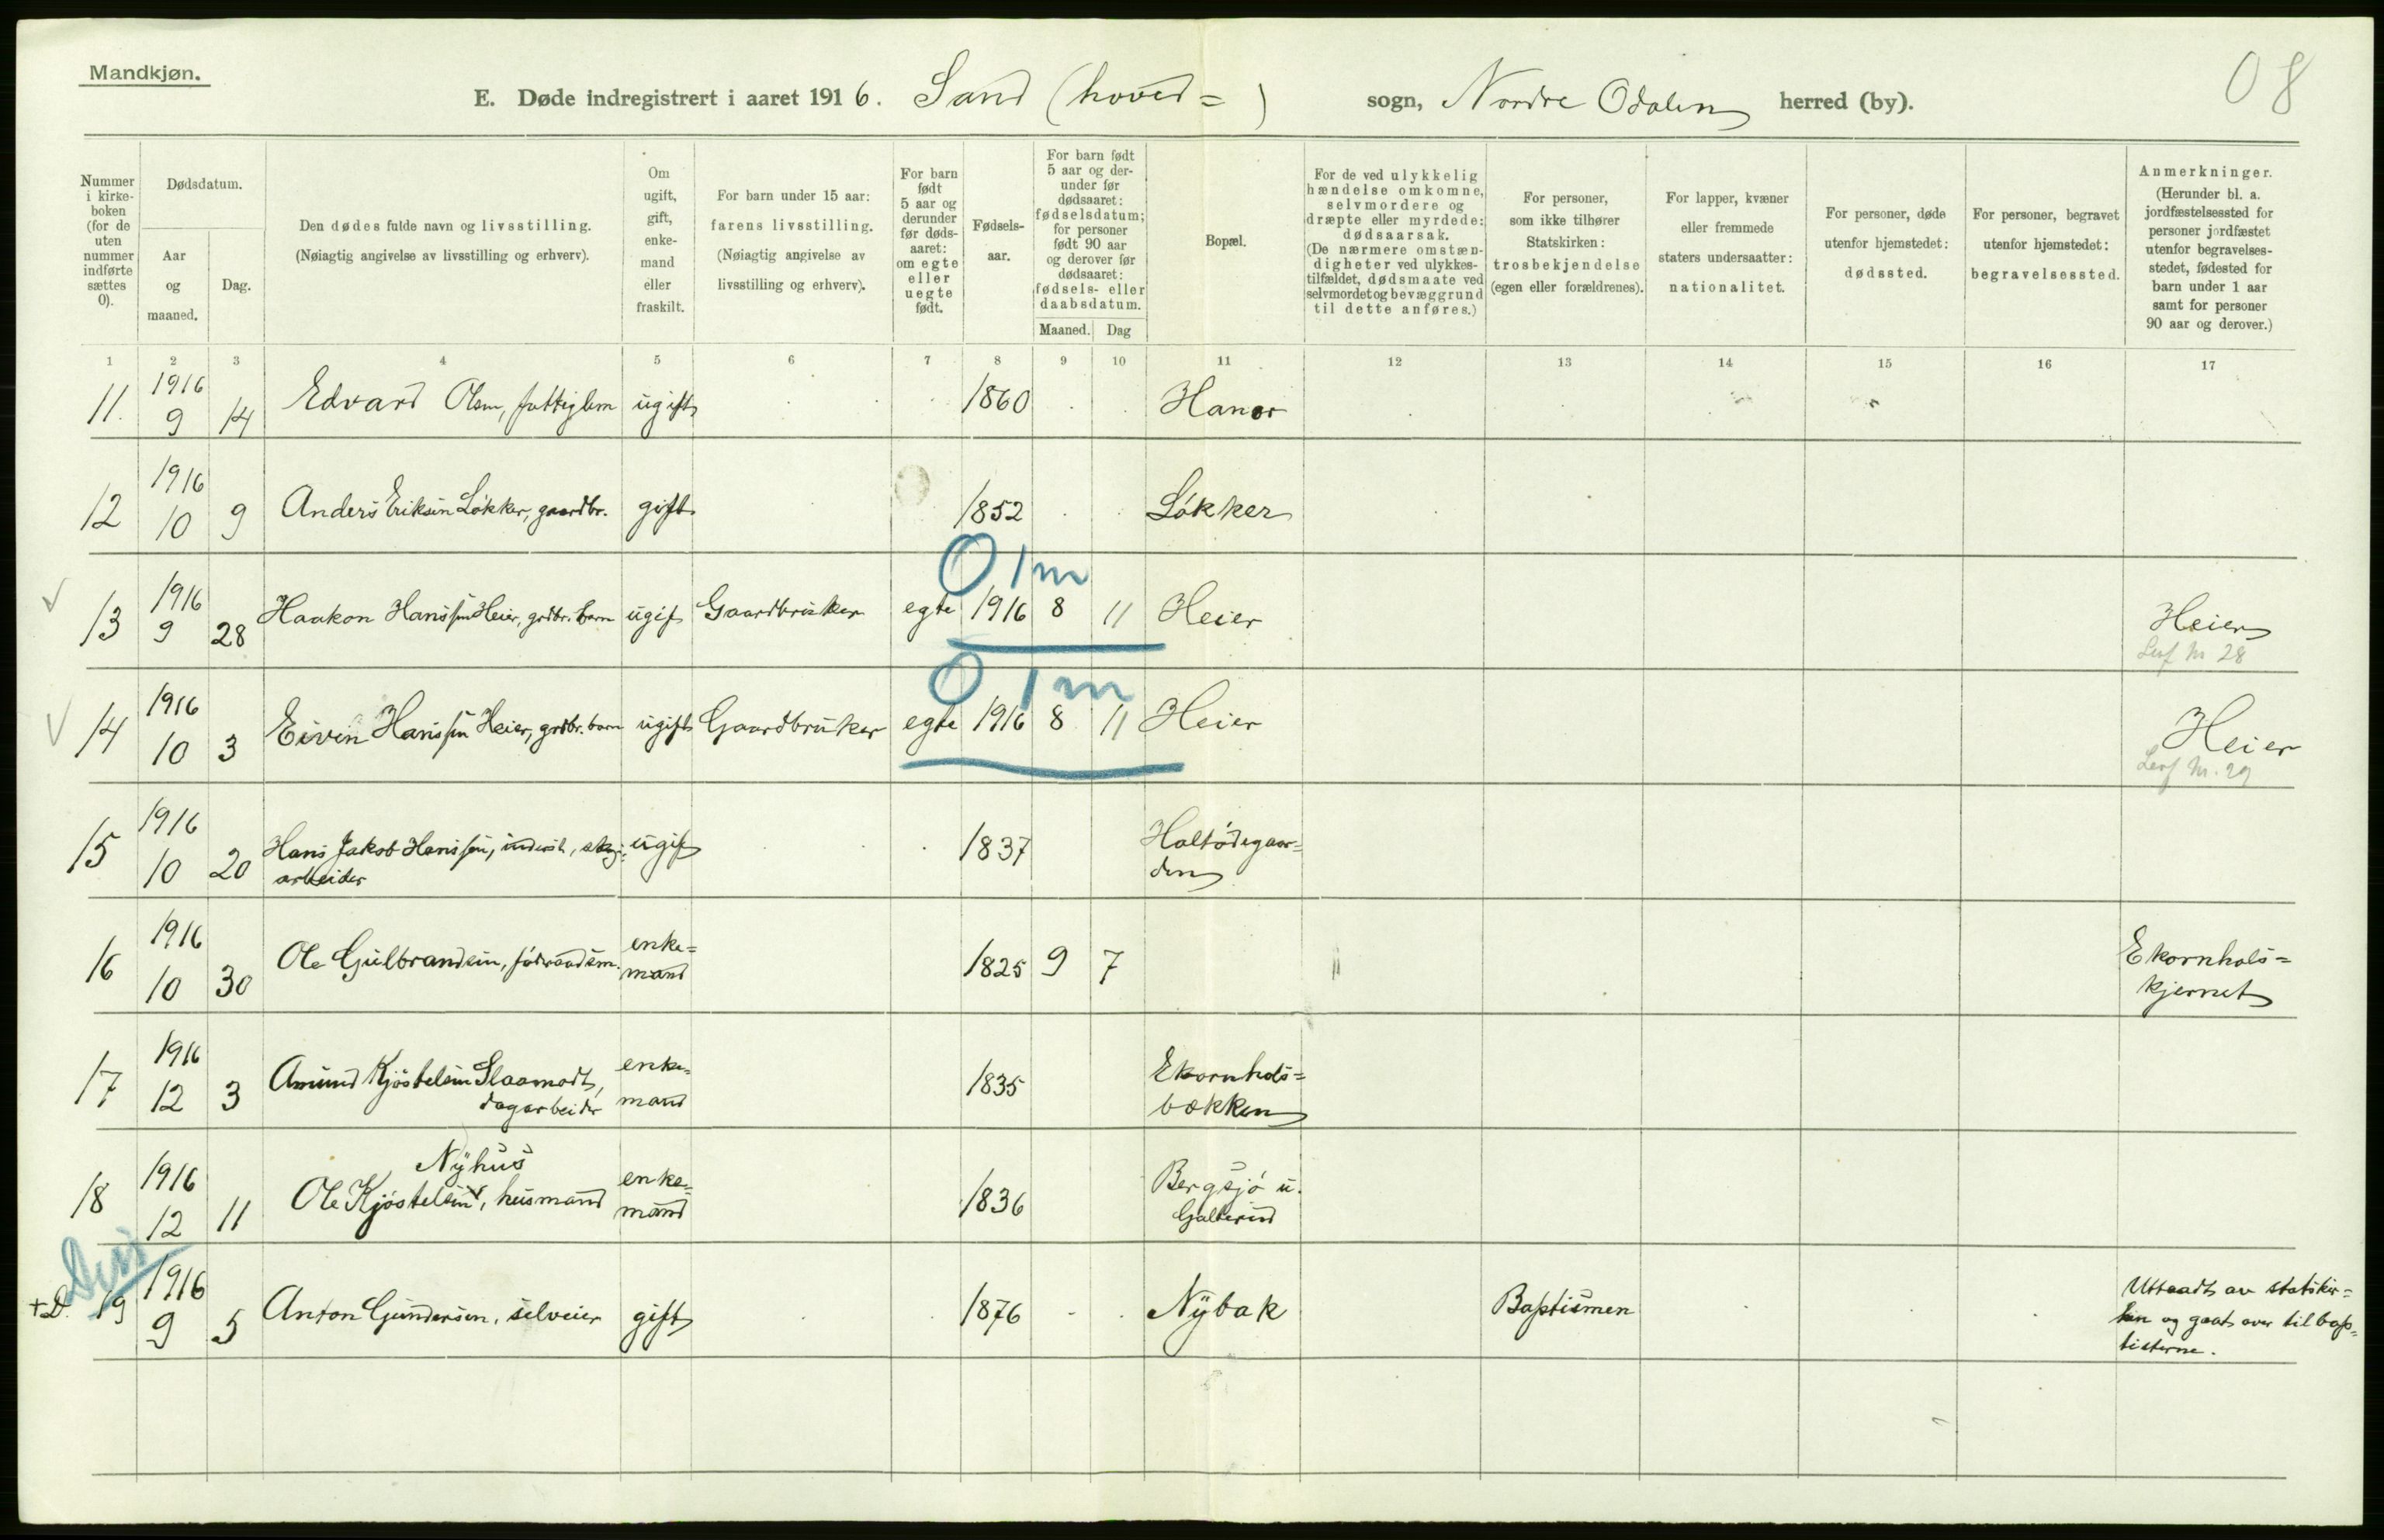 Mandkjøn.
08
E. Døde indregistrert i aaret 1916. Sand (hoved=) sogn, Nordre Odalen herred (by).
Nummer i kirke-boken (for de uten nummer indførte sættes 0).
Dødsdatum.
Aar og maaned.
Dag.
Den dødes fulde navn og livsstilling.
(Nøiagtig angivelse av livsstilling og erhverv).
Om ugift, gift, enke-mand eller fraskilt.
For barn under 15 aar: farens livsstilling.
(Nøiagtig angivelse av livsstilling og erhverv).
For barn født 5 aar og derunder før døds-aaret: om egte eller uegte født.
Fødsels-aar.
For barn født 5 aar og der-under før dødsaaret: fødselsdatum; for personer født 90 aar og derover før dødsaaret: fødsels- eller daabsdatum.
Maaned.
Dag
Bopæl.
For de ved ulykkelig hændelse omkomne, selvmordere og dræpte eller myrdede: dødsaarsak.
(De nærmere omstæn-digheter ved ulykkes-tilfældet, dødsmaate ved selvmordet og bevæggrund til dette anføres.)
For personer, som ikke tilhører Statskirken: trosbekjendelse (egen eller forældrenes).
For lapper, kvæner eller fremmede staters undersaatter: nationalitet.
For personer, døde utenfor hjemstedet: dødssted.
For personer, begravet utenfor hjemstedet: begravelsessted.
Anmerkninger.
(Herunder bl. a. jordfæstelsessted for personer jordfæstet utenfor begravelses-stedet, fødested for barn under 1 aar samt for personer 90 aar og derover.)
1 2 3 4 5 6 7 8 9 10 11 12 13 14 15 16 17
11. 1916 9 14 Edvard Olsen, fattiglem ugift 1860 Haner
12 1916 10 9 Anders Eriksen Løkker, gaardbr. gift 1852 Løkker
0 1m
13 1916 9 28 Haakon Hanssen Heier, grdbr. barn ugift Gaardbruker egte 1916 8 11 Heier Heier
Lev nr 28
0 1m
14 1916 10 3 Eivin Hanssen Heier, grdbr. barn ugift Gaardbruker egte 1916 8 11 Heier Heier
Lev nr. 29
15 1916 10 20 Hans Jakob Hanssen, inderst, skogs=
arbeider ugift 1837 Holtødegaar=
den
16 1916 10 30 Ole Gulbrandsen, føderaadsm. enke=
mand 1825 9 7 Ekornhols=
kjernet
17 1916 12 3 Amund Kjøstelsen Slaamodt,
dagarbeider enke=
mand 1835 Ekornhols=
bækken
18 1916 12 11 Ole Kjøstelsen Nyhus, husmand enke=
mand 1836 Bergsjø u.
Galterud
Diss
+D. 19 1916 9 5 Anton Gundersen, selveier gift 1876 Nybak Baptismen Uttraadt av statskir=
ken og gaat over til bap=
tisterne.